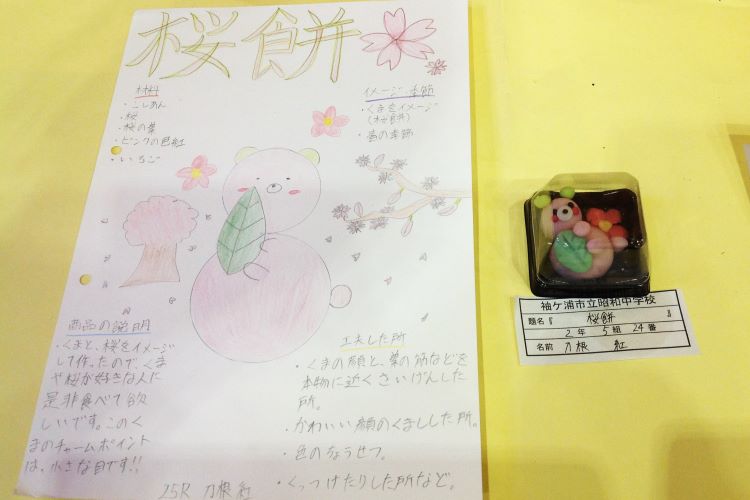 桜餅
材料
・こしあん
・桜
・桜の葉
・ピンクの色紅
・いちご
イメージ・季節
・くまをイメージ
(桜餅)
・春の季節
商品の説明
・くまと、桜をイメージ
して作ったので、くま
や桜が好きな人に
是非食べて欲
しいです。このく
まのチャームポイント
は、小さな目です!!
工夫した所
・くまの顔と、葉の筋などを
本物に近くさいげんした
所。
・かわいい顔のくまにした所。
・色のちょうせつ。
・くっつけたりした所など。
25R 刀根 紅
袖ケ浦市立昭和中学校
題名『 桜餅 』
2年 5組 24番
名前 刀根 紅